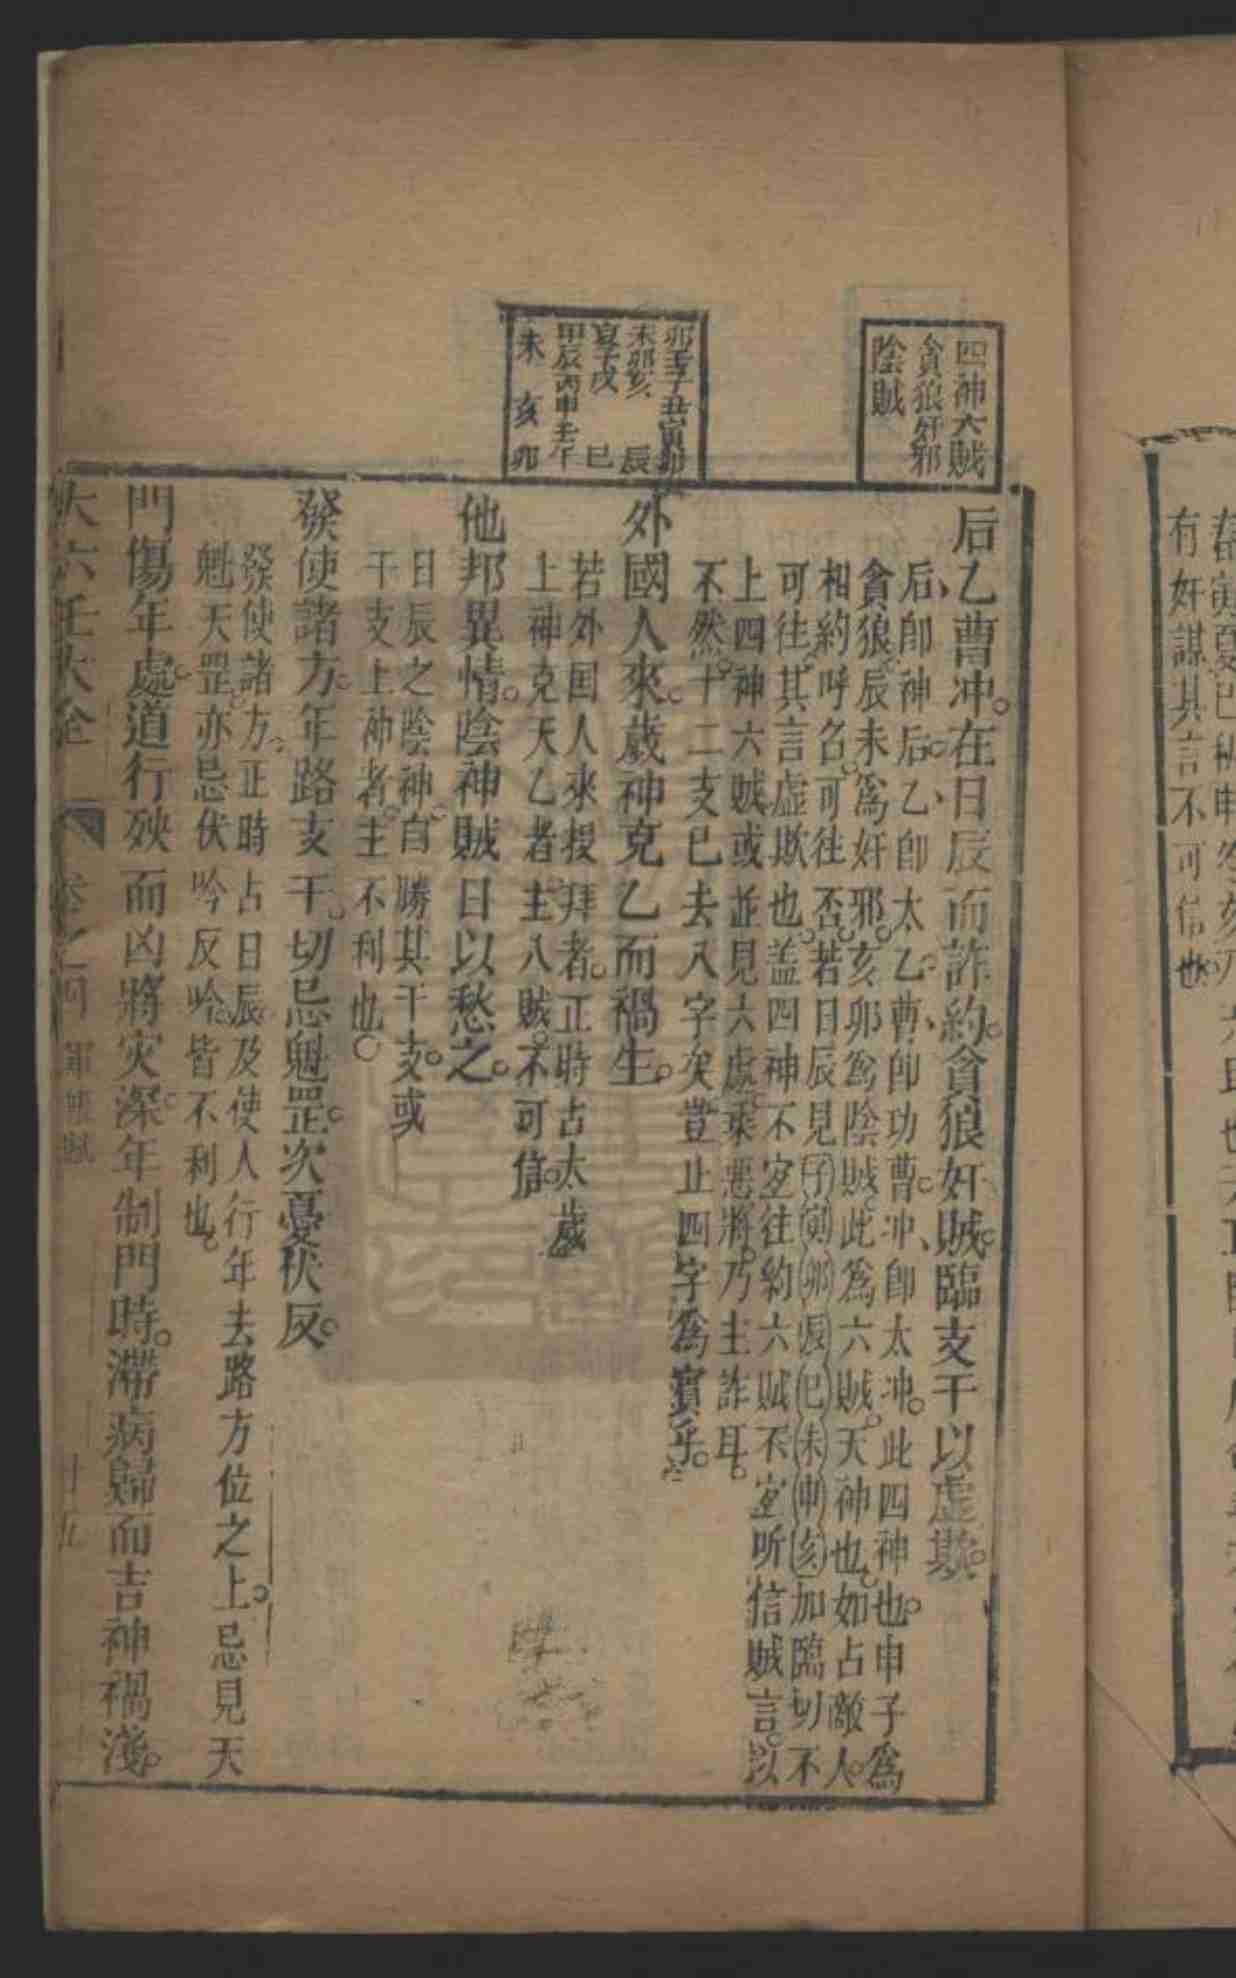 有奸謀其言不可信也
四神六賊
貪狼奸邪
陰賊
后乙曹冲在日辰而詐約貪狼奸賊臨支干以虛欺
后卽神后乙卽太乙曹卽功曹冲卽太冲此四神也申子爲
貪狼辰未爲奸邪亥卯爲陰賊此爲六賊天神也如占敵人
相約呼召可往否若日辰見子寅卯辰巳未申亥加臨切不
可往其言虛欺也盖四神不宜往約六賊不宜听信賊言以
上四神六賊或並見六處乘惡將乃主詐耳
不然十二支已去八字矣豈止四字爲實乎
卯壬子丑寅卯
未卯亥 辰
寅子戌 巳
甲辰丙申壬午
未亥卯
外國人來歲神克乙而禍生
若外国人來授拜者正時占太歲
上神克天乙者主八賊不可信
他邦異情陰神賊日以愁之
日辰之陰神自勝其干支或
干支上神者主不利也
發使諸方年路支干切忌魁罡次憂伏反
發使諸方正時占日辰及使人行年去路方位之上忌見天
魁天罡亦忌伏吟反吟皆不利也
門傷年處道行殃而凶將灾深年制門時滯病歸而吉神禍淺
大六壬大全 卷之四